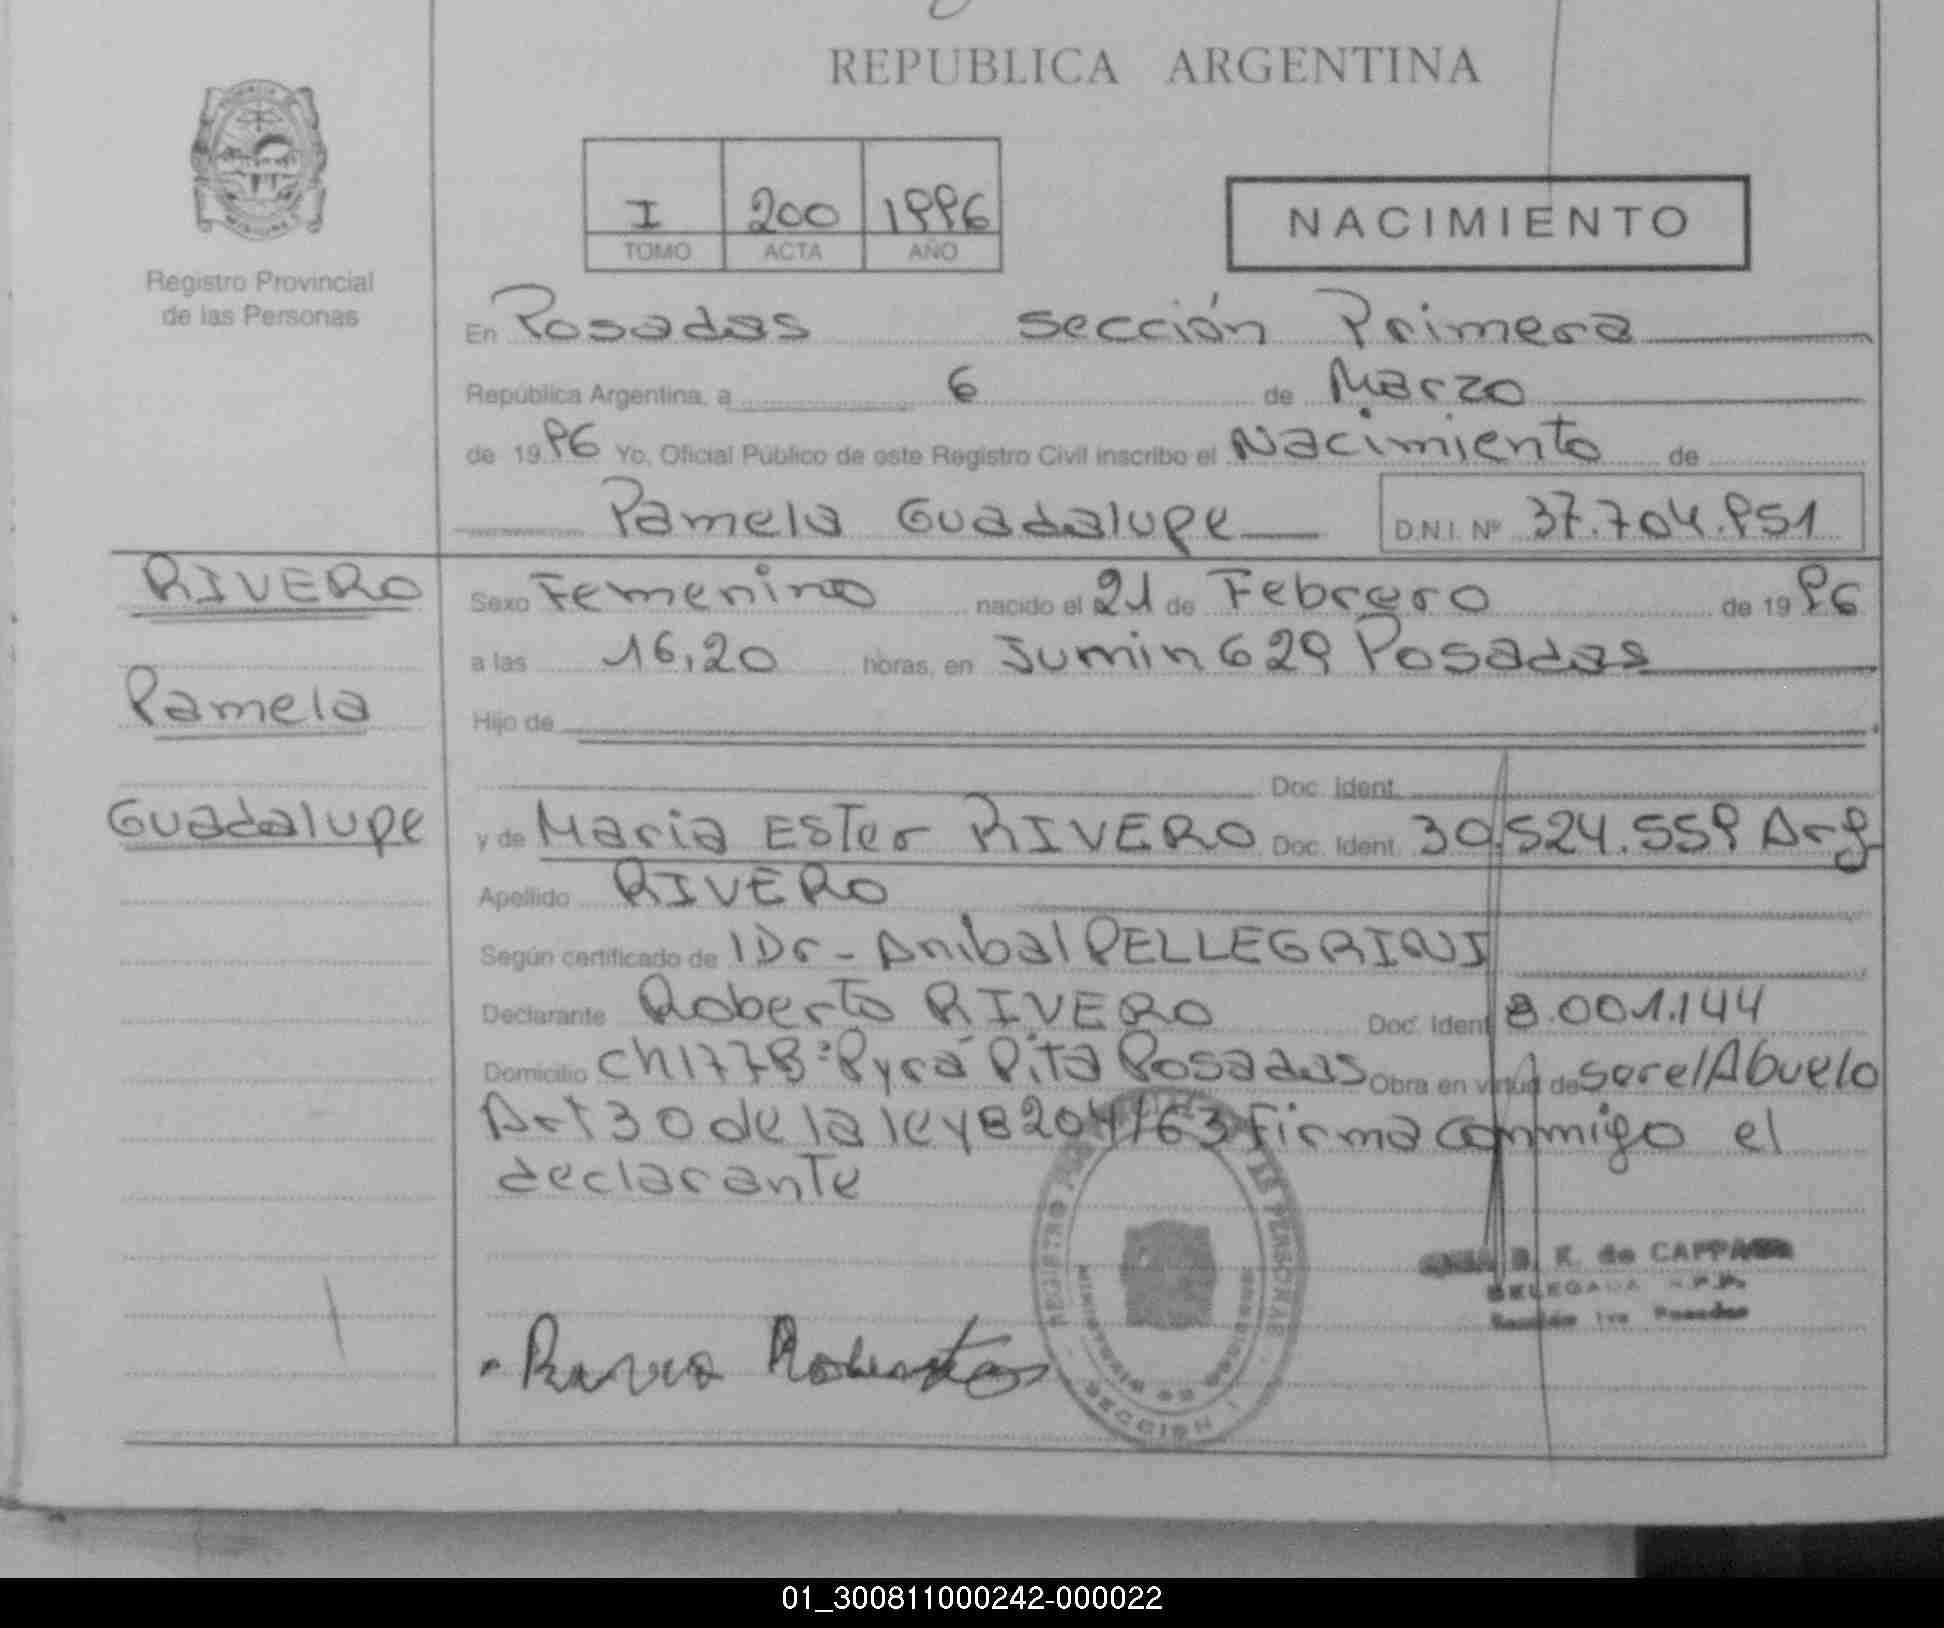 REPUBLICA ARGENTINA
I 200 1996
TOMO ACTA AÑO
NACIMIENTO
Registro Provincial
de las Personas
En Posadas sección Primera
República Argentina, a 6 de Marzo
de 1996 Yo, Oficial Público de este Registro Civil inscribo el Nacimiento de
Pamela Guadalupe D.N.I. Nº 37.704.951
RIVERO
Pamela
Guadalupe
Sexo Femenino nacido el 21 de Febrero de 1996
a las 16,20 horas, en Jumin 629 Posadas
Hijo de
Doc. Ident.
y de Maria Ester RIVERO Doc. Ident. 30.524.559 Arg
Apellido RIVERO
Según certificado de 1Dr - Anibal PELLEGRINI
Declarante Roberto RIVERO Doc. Ident 8.001.144
Domicilio Ch 177 Bº Pyra Pita Posadas Obra en virtud de ser el Abuelo
Art 30 de la ley 8204/63 Firma conmigo el
declarante
REGISTRO PERSONAS
MINISTERIO DE GOBIERNO
SECCION 1
B. K. de
DELEGADA
Sección 1ra Posadas
Rivero Roberto
01_300811000242-000022